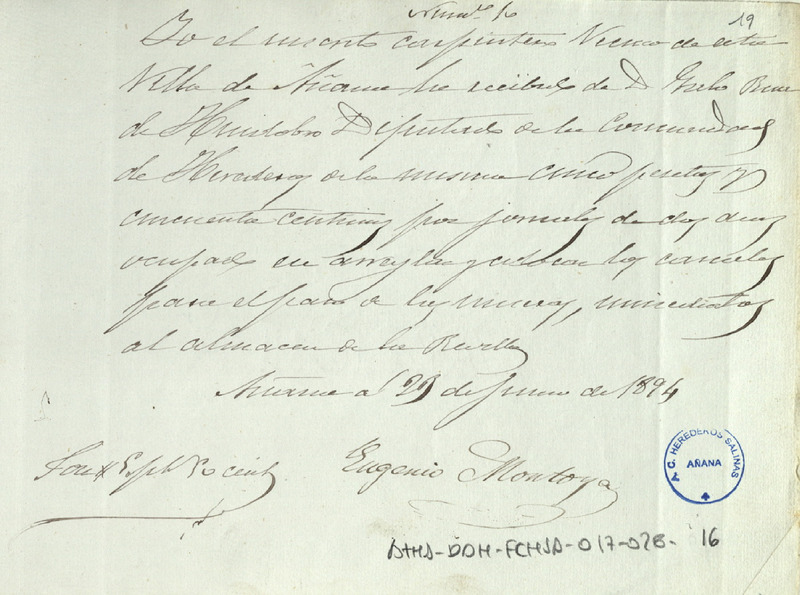 Num.º 16
19
Yo el maestro carpintero Vecino de esta
Villa de Añana he recibido de D.
de Huidobro Diputado de la Comunidad
de Herederos de la misma cinco pesetas y
cincuenta centimos por jornales de dos dias
ocupado en arreglar y colocar los canales
para el paso de las mueras, inmediatas
al almacen de la Revilla
Añana a 29 de Junio de 1894
Son 5 Pts 50 cents
Eugenio Montoya
A C. HEREDEROS SALINAS
AÑANA
ATHA-DDH-FCHSA-017-028-16